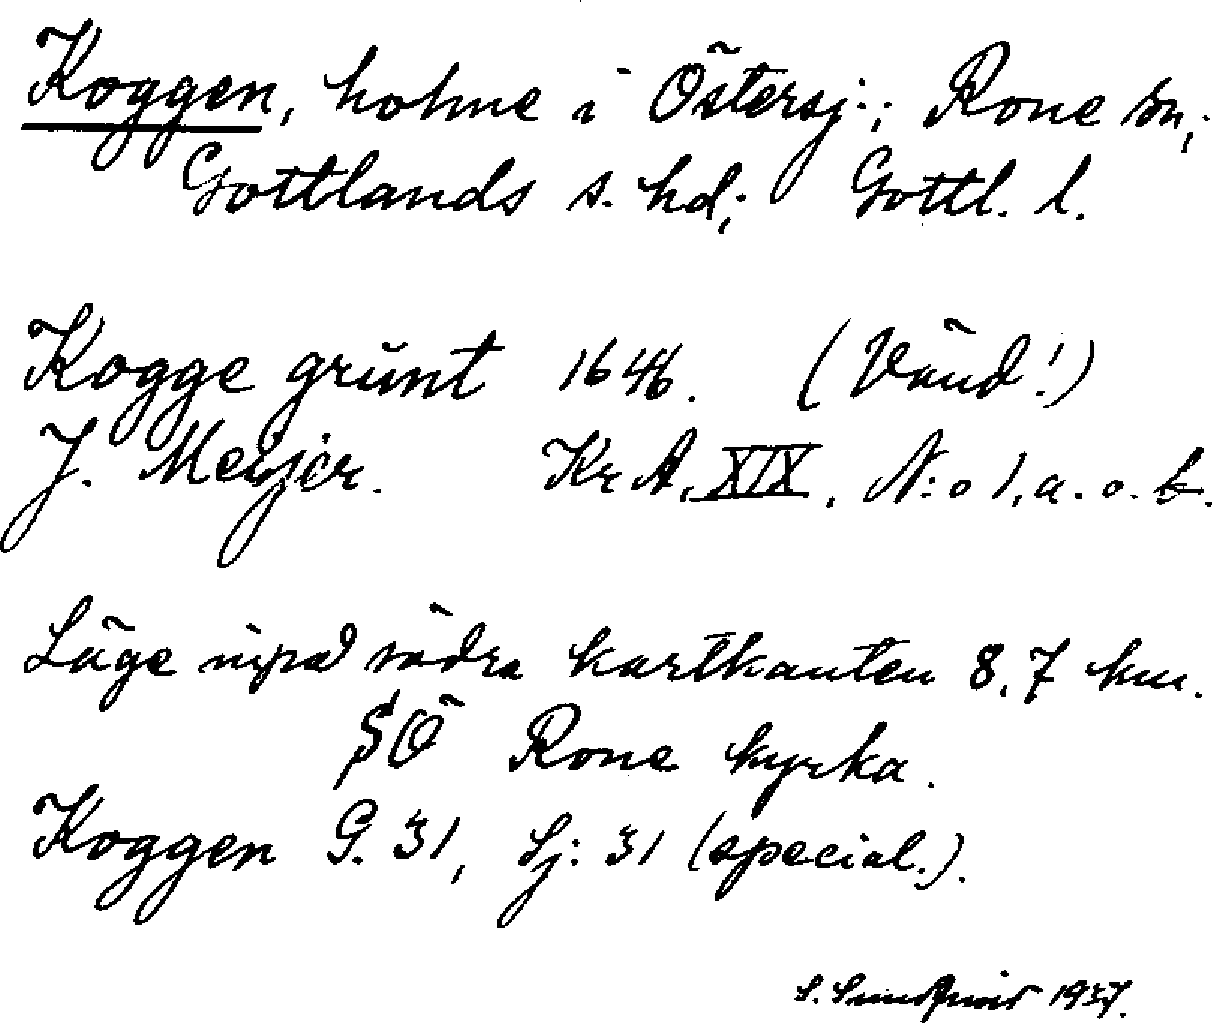 Koggen, holme i Östersj:; Rone sn;
Gottlands s. hd; Gottl. l.
Kogge grünt 1646. (Vänd!)
J. Meijer. Kr A, XIX, N:o 1, a. o. b.
Läge invid södra kartkanten 8,7 km.
SÖ Rone kyrka.
Koggen G. 31, Sj: 31 (special.).
S. Sundqvist 1937.